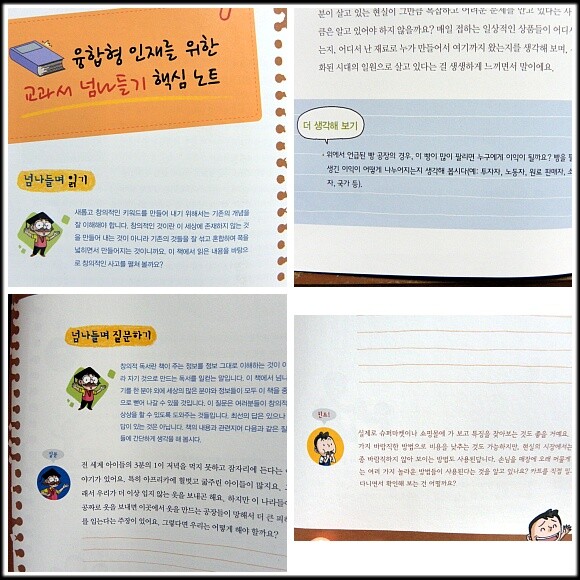 융합형 인재를 위한
교과서 넘나들기 핵심 노트
넘나들며 읽기
새롭고 창의적인 키워드를 만들어 내기 위해서는 기존의 개념을
잘 이해해야 합니다. 창의적인 것이란 이 세상에 존재하지 않는 것
을 만들어 내는 것이 아니라 기존의 것들을 잘 섞고 혼합하여 폭을
넓히면서 만들어지는 것이니까요. 이 책에서 읽은 내용을 바탕으
로 창의적인 사고를 펼쳐 볼까요?
분이 살고 있는 현실이 그만큼 복잡하고 어려운 문제를 안고 있다는 사
큼은 알고 있어야 하지 않을까요? 매일 접하는 일상적인 상품들이 어디서
는지, 어디서 난 재료로 누가 만들어서 여기까지 왔는지를 생각해 보며,
화된 시대의 일원으로 살고 있다는 걸 생생하게 느끼면서 말이에요.
더 생각해 보기
• 위에서 언급된 빵 공장의 경우, 이 빵이 많이 팔리면 누구에게 이익이 될까요? 빵을 팔
생긴 이익이 어떻게 나누어지는지 생각해 봅시다(예: 투자자, 노동자, 원료 판매자, 소
자, 국가 등).
넘나들며 질문하기
창의적 독서란 책이 주는 정보를 정보 그대로 이해하는 것이 아
라 자기 것으로 만드는 독서를 일컫는 말입니다. 이 책에서 넘나
기를 한 분야 외에 세상의 많은 분야와 정보들이 모두 이 책을 중
으로 뻗어 나갈 수 있을 것입니다. 이 질문은 여러분들이 창의적
상상을 할 수 있도록 도와주는 것들입니다. 최선의 답은 있으나
답이 있는 것은 아닙니다. 책의 내용과 관련지어 다음과 같은 질
들에 간단하게 생각을 해 봅시다.
질문
전 세계 아이들의 3분의 1이 저녁을 먹지 못하고 잠자리에 든다는 이
야기가 있어요. 특히 아프리카에 헐벗고 굶주린 아이들이 많지요. 그
래서 우리가 더 이상 입지 않는 옷을 보내곤 해요. 하지만 이 나라들이
공짜로 옷을 보내면 이곳에서 옷을 만드는 공장들이 망해서 더 큰 피해
를 입는다는 주장이 있어요. 그렇다면 우리는 어떻게 해야 할까요?
힌트!
실제로 슈퍼마켓이나 쇼핑몰에 가 보고 특징을 찾아보는 것도 좋을 거예요.
가지 바람직한 방법으로 비용을 낮추는 것도 가능하지만, 현실의 시장에서는
좀 바람직하지 않아 보이는 방법도 사용된답니다. 손님을 매장에 오래 머물게
는 여러 가지 놀라운 방법들이 사용된다는 것을 알고 있나요? 카트를 직접 밀
다니면서 확인해 보는 건 어떨까요?